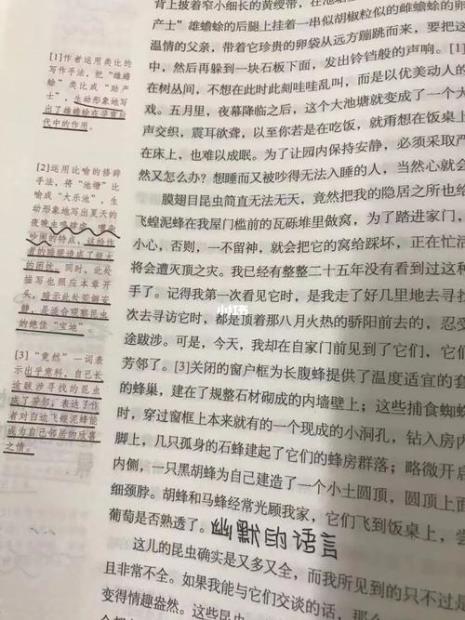 背上披着窄小细长的黄绶带，在池
产士”雄蟾蜍的后腿上挂着一串似胡椒粒似的雌蟾蜍的卵
温情的父亲，带着它珍贵的卵袋从远方蹦跳而来，要把这
中，然后再躲到一块石板下面，发出铃铛般的声响。[1]
在树丛间，不想在此时此刻哇哇乱叫，而是以优美动人的
戏。五月里，夜幕降临之后，这个大池塘就变成了一个大
声交织，震耳欲聋，以至你若是在吃饭，就甭想在饭桌上
在床上，也难以成眠。为了让园内保持安静，必须采取严
然又怎么办？想睡而又被吵得无法入睡的人，当然心就会
膜翅目昆虫简直无法无天，竟然把我的隐居之所也给
飞蝗泥蜂在我屋门槛前的瓦砾堆里做窝，为了踏进家门，
小心，否则，一不留神，就会把它的窝给踩坏，正在忙活
将会遭灭顶之灾。我已经有整整二十五年没有看到过这种
手了。记得我第一次看见它时，是我走了好几里地去寻找
次去寻访它时，都是顶着那八月火热的骄阳前去的，忍受
途跋涉。可是，今天，我却在自家门前见到了它们，它们
芳邻了。[3]关闭的窗户框为长腹蜂提供了温度适宜的套
的蜂巢，建在了规整石材砌成的内墙壁上；这些捕食蜘蛛
时，穿过窗框上本来就有的一个现成的小洞孔，钻入房内
脚上，几只孤身的石蜂建起了它们的蜂房群落；略微开启
内侧，一只黑胡蜂为自己建造了一个小土圆顶，圆顶上面
细颈脖。胡蜂和马蜂经常光顾我家，它们飞到饭桌上，尝
葡萄是否熟透了。幽默的语言
这儿的昆虫确实是又多又全，而我所见到的只不过是
且非常不全。如果我能与它们交谈的话，那么
变得情趣盎然。这些昆虫
[1]作者运用类比的
写作手法，把“雄蟾
蜍”类比成“助产
士”，生动形象地写
出了雄蟾蜍在孕育后
代中的作用。
[2]运用比喻的修辞
手法，将“池塘”比
喻成“大乐池”，生
动形象地写出夏天的
同时，此处
描写也照应本章开
绝佳“宝地”
[3]“竟然”一词表
示出乎意料，自己长
途跋涉寻找的昆虫
成了芳邻，表达了作
者对白边飞蝗泥蜂能
成为自己邻居的欣喜
之情。
小红书